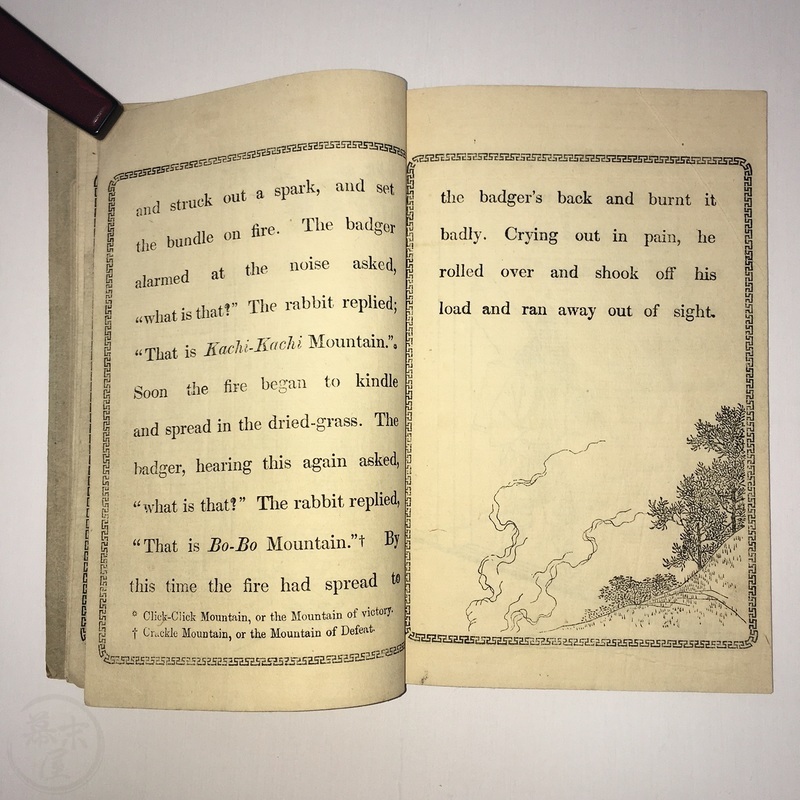 and struck out a spark, and set
the bundle on fire. The badger
alarmed at the noise asked,
“what is that?” The rabbit replied;
“That is Kachi-Kachi Mountain.”*
Soon the fire began to kindle
and spread in the dried-grass. The
badger, hearing this again asked,
“what is that?” The rabbit replied,
“That is Bo-Bo Mountain.”† By
this time the fire had spread to
* Click-Click Mountain, or the Mountain of victory.
† Crackle Mountain, or the Mountain of Defeat.
the badger's back and burnt it
badly. Crying out in pain, he
rolled over and shook off his
load and ran away out of sight.
幕末屋